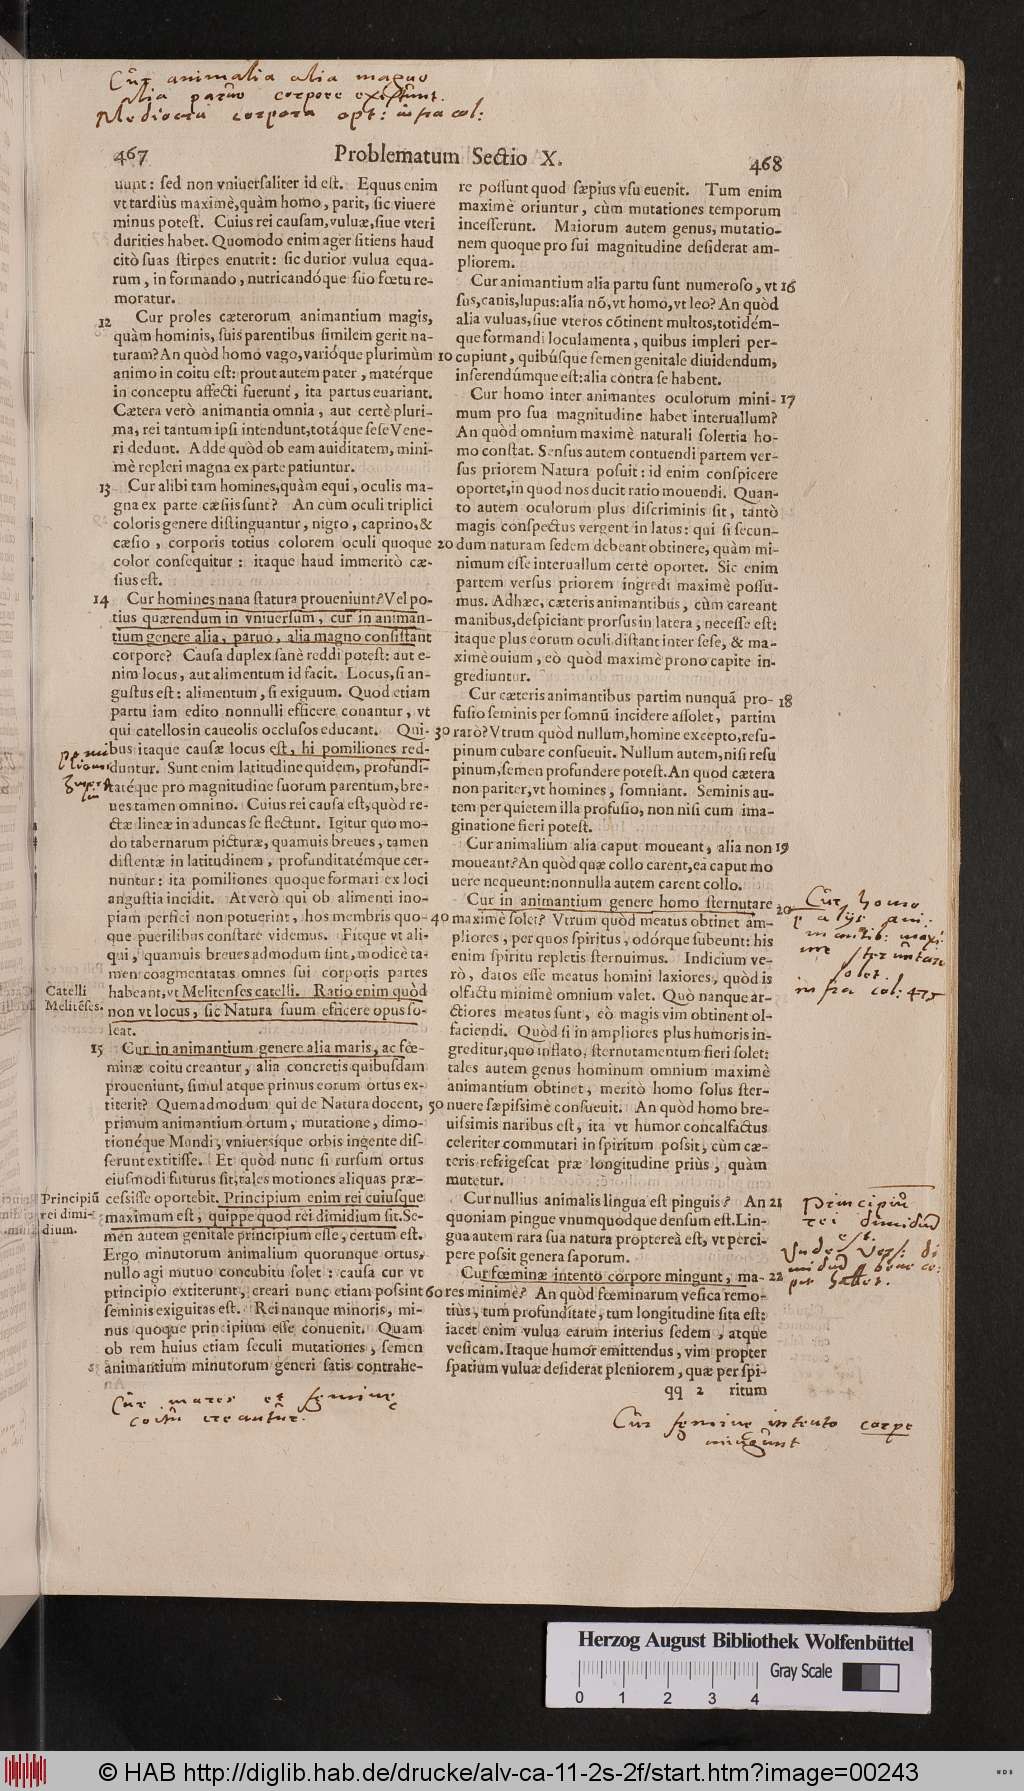 Cur animalia alia magno
alia paruo corpore existunt.
Mediocria corpora opt: infra col:
467 Problematum Sectio X. 468
uunt: sed non vniuersaliter id est. Equus enim
vt tardiùs maximè, quàm homo, parit, sic viuere
minus potest. Cuius rei causam, vuluæ, siue vteri
durities habet. Quomodo enim ager sitiens haud
citò suas stirpes enutrit: sic durior vulua equa-
rum, in formando, nutricandóque suo fœtu re-
moratur.
12 Cur proles cæterorum animantium magis,
quàm hominis, suis parentibus similem gerit na-
turam? An quòd homo vago, varióque plurimùm
animo in coitu est: prout autem pater, matérque
in conceptu affecti fuerunt, ita partus euariant.
Cætera verò animantia omnia, aut certè pluri-
ma, rei tantum ipsi intendunt, totáque sese Vene-
ri dedunt. Adde quòd ob eam auiditatem, mini-
mè repleri magna ex parte patiuntur.
13 Cur alibi tam homines, quàm equi, oculis ma-
gna ex parte cæsiis sunt? An cùm oculi triplici
coloris genere distinguantur, nigro, caprino, &
cæsio, corporis totius colorem oculi quoque
color consequitur: itaque haud immeritò cæ-
sius est.
14 Cur homines nana statura proueniunt? Vel po-
tius quærendum in vniuersum, cur in animan-
tium genere alia, paruo, alia magno consistant
corpore? Causa duplex sanè reddi potest: aut e-
nim locus, aut alimentum id facit. Locus, si an-
gustus est: alimentum, si exiguum. Quod etiam
partu iam edito nonnulli efficere conantur, vt
qui catellos in caueolis occlusos educant. Qui-
bus itaque causæ locus est, hi pomiliones red-
duntur. Sunt enim latitudine quidem, profundi-
tatéque pro magnitudine suorum parentum, bre-
ues tamen omnino. Cuius rei causa est, quòd re-
ctæ lineæ in aduncas se flectunt. Igitur quo mo-
do tabernarum picturæ, quamuis breues, tamen
distentæ in latitudinem, profunditatémque cer-
nuntur: ita pomiliones quoque formari ex loci
angustia incidit. At verò qui ob alimenti ino-
piam perfici non potuerint, hos membris quo-
que puerilibus constare videmus. Fitque vt ali-
qui, quamuis breues admodum sint, modicè ta-
men coagmentatas omnes sui corporis partes
habeant, vt Melitenses catelli. Ratio enim quòd
non vt locus, sic Natura suum efficere opus so-
leat.
Catelli
Melitẽses.
15 Cur in animantium genere alia maris, ac fœ-
minæ coitu creantur, alia concretis quibusdam
proueniunt, simul atque primus eorum ortus ex-
titerit? Quemadmodum qui de Natura docent,
primum animantium ortum, mutatione, dimo-
tionéque Mundi, vniuersíque orbis ingente dis-
serunt extitisse. Et quòd nunc si rursum ortus
eiusmodi futurus sit, tales motiones aliquas præ-
cessisse oportebit. Principium enim rei cuiusque
maximum est, quippe quod rei dimidium sit. Se-
men autem genitale principium esse, certum est.
Ergo minutorum animalium quorunque ortus,
nullo agi mutuo concubitu solet: causa cur vt
principio extiterunt, creari nunc etiam possint
seminis exiguitas est. Rei nanque minoris, mi-
nus quoque principium esse conuenit. Quam
ob rem huius etiam seculi mutationes, semen
animantium minutorum generi satis contrahe-
Principiũ
rei dimi-
dium.
Cur mares et femine
coitu creantur.
re possunt quod sæpius vsu euenit. Tum enim
maximè oriuntur, cùm mutationes temporum
incesserunt. Maiorum autem genus, mutatio-
nem quoque pro sui magnitudine desiderat am-
pliorem.
Cur animantium alia partu sunt numeroso, vt 16
sus, canis, lupus: alia nõ, vt homo, vt leo? An quòd
alia vuluas, siue vteros cõtinent multos, totidém-
que formandi loculamenta, quibus impleri per-
10 cupiunt, quibúsque semen genitale diuidendum,
inserendúmque est: alia contra se habent.
Cur homo inter animantes oculorum mini- 17
mum pro sua magnitudine habet interuallum?
An quòd omnium maximè naturali solertia ho-
mo constat. Sensus autem contuendi partem ver-
sus priorem Natura posuit: id enim conspicere
oportet, in quod nos ducit ratio mouendi. Quan-
to autem oculorum plus discriminis sit, tantò
magis conspectus vergent in latus: qui si secun-
20 dum naturam sedem debeant obtinere, quàm mi-
nimum esse interuallum certè oportet. Sic enim
partem versus priorem ingredi maximè possu-
mus. Adhæc, cæteris animantibus, cùm careant
manibus, despiciant prorsus in latera, necesse est:
itaque plus eorum oculi distant inter sese, & ma-
ximè ouium, eò quòd maximè prono capite in-
grediuntur.
Cur cæteris animantibus partim nunquã pro- 18
fusio seminis per somnũ incidere assolet, partim
30 rarò? Vtrum quòd nullum, homine excepto, resu-
pinum cubare consueuit. Nullum autem, nisi resu
pinum, semen profundere potest. An quod cætera
non pariter, vt homines, somniant. Seminis au-
tem per quietem illa profusio, non nisi cum ima-
ginatione fieri potest.
Cur animalium alia caput moueant, alia non 19
moueant? An quòd quæ collo carent, ea caput mo
uere nequeunt: nonnulla autem carent collo.
Cur in animantium genere homo sternutare 20
40 maximè solet? Vtrum quòd meatus obtinet am-
pliores, per quos spiritus, odórque subeunt: his
enim spiritu repletis sternuimus. Indicium ve-
rò, datos esse meatus homini laxiores, quòd is
olfactu minimè omnium valet. Quò nanque ar-
ctiores meatus sunt, eò magis vim obtinent ol-
faciendi. Quòd si in ampliores plus humoris in-
greditur, quo inflato, sternutamentum fieri solet:
tales autem genus hominum omnium maximè
animantium obtinet, meritò homo solus ster-
50 nuere sæpissimè consueuit. An quòd homo bre-
uissimis naribus est, ita vt humor concalfactus
celeriter commutari in spiritum possit, cùm cæ-
teris refrigescat præ longitudine priùs, quàm
mutetur.
Cur nullius animalis lingua est pinguis? An 21
quoniam pingue vnumquodque densum est. Lin-
gua autem rara sua natura proptereà est, vt perci-
pere possit genera saporum.
Cur fœminæ intento corpore mingunt, ma- 22
60 res minimè? An quòd fœminarum vesica remo-
tiùs, tum profunditate, tum longitudine sita est:
iacet enim vulua earum interius sedem, atque
vesicam. Itaque humor emittendus, vim propter
spatium vuluæ desiderat pleniorem, quæ per spi-
qq 2 ritum
Cur homo
alijs ani:
mantib: maxi
me sternutare
solet.
infra col: 475
Principiũ
rei dimidiũ
est.
Cur femine intento corpe
mingunt
Herzog August Bibliothek Wolfenbüttel
Gray Scale
0 1 2 3 4
© HAB http://diglib.hab.de/drucke/alv-ca-11-2s-2f/start.htm?image=00243